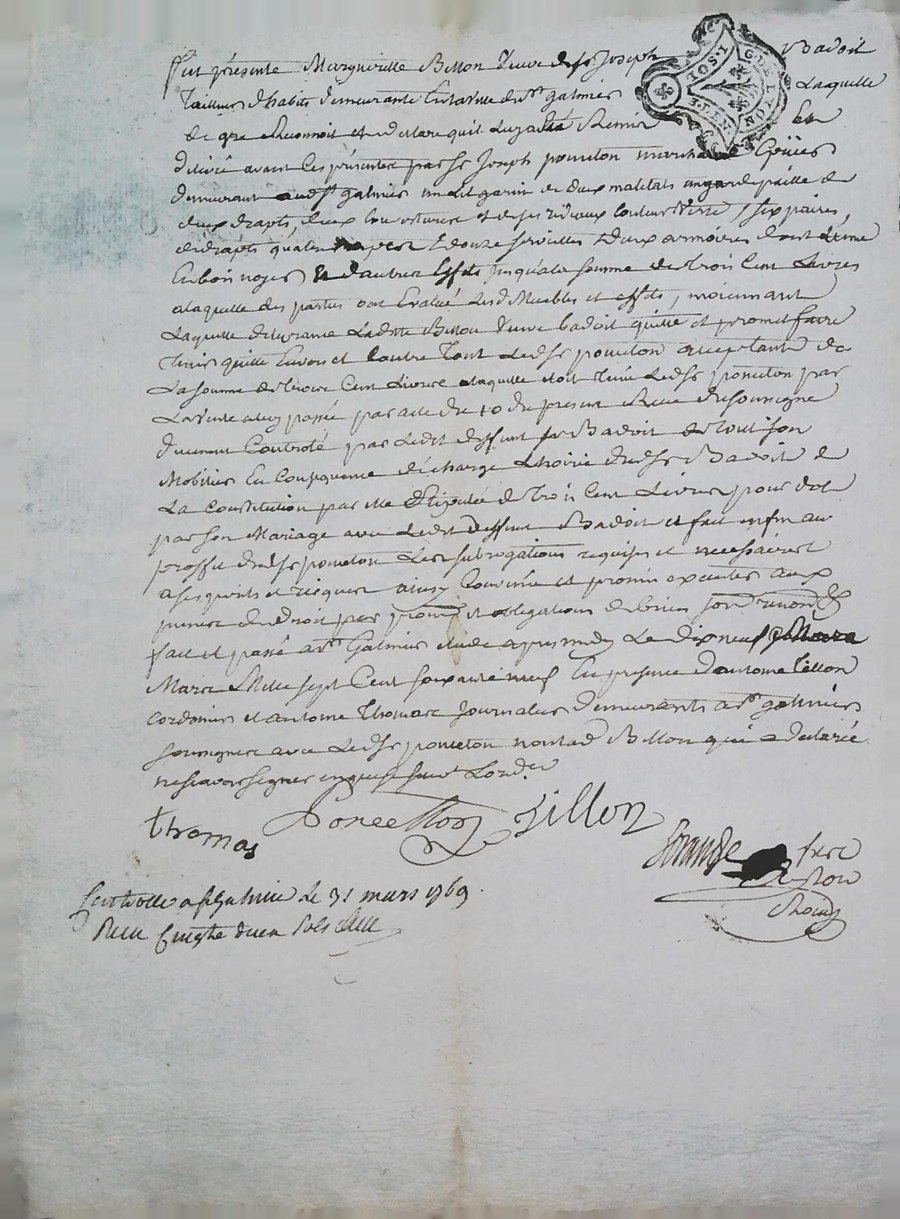 fut présente Margueritte Billon veuve de Sr Joseph Badoit
tailleur d'habits demeurante en la ville de St galmier Laquelle
de gré Reconnoit et declare qu'il luy a été Remis et
délivré avant ces présentes par Sr Joseph poncton march
demeurant aud. St galmier un lit garni de deux matelats un garde paille de
deux drapts, deux couvertures et de ses rideaux couleur verte, six paires
de drapts quatre et douze serviettes deux armoires dont L'une
en bois noyer Et d'autres Effets jusqu'a la somme de trois Cent Livres
a laquelle des parties ont Evalué Lesd. Meubles et effets, moienant
Laquelle delivrance Ladite Billon veuve badoit quitte et promet faire
tenir quitte Envers et contre tout Ledit Sr poncton acceptant de
La somme de trois Cent Livres a laquelle etoit tenu Led. Sr poncton par
La vente a luy passée par acte du 10 du present Receu du soussigné
duement Controlé par Ledit deffunt Sr Badoit de tout son
Mobilier En Consequence décharge L'hoirie dud. Sr Badoit de
La Constitution par elle Stipulée de Trois Cent Livres pour dot
par son Mariage avec Ledit Deffunt Badoit et fait enfin au
proffit dud. Sr poncton Les subrogations requises et necessaires
a ses perils et risques ainsy Convenu et promis executer aux
peines de droit par et obligations de biens
fait et passé a St Galmier etude apres midy Le dix neuf
Mars Mille sept Cent soixante neuf En presence d'antoine tillon
cordonier et antoine Thomas Journalier demeurants a St galmier
soussignez avec Led. Sr poncton non lad. Billon qui a declaré
ne scavoir signer enquise
1.SOL
GUE. LYON
thomas Poncetton Tillon
Controllé a St Galmier Le 31 mars 1769.
Receu sols